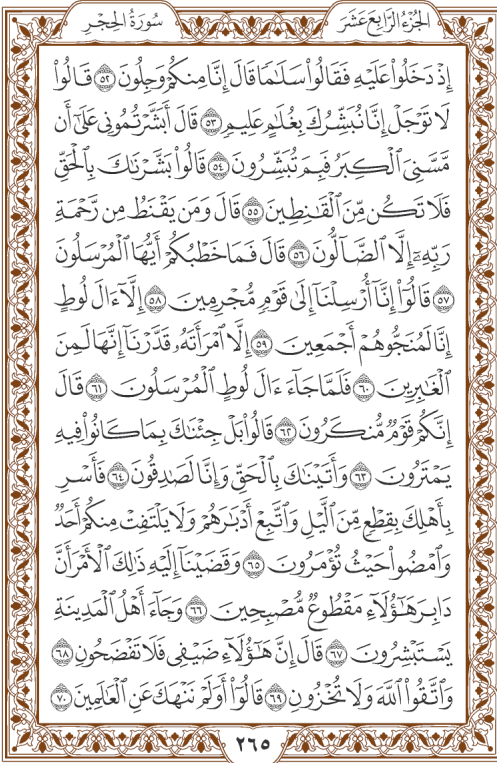 الجُزْءُ الرَّابِعَ عَشَرَ
سُورَةُ الحِجْرِ
إِذْ دَخَلُوا۟ عَلَيْهِ فَقَالُوا۟ سَلَٰمًا قَالَ إِنَّا مِنكُمْ وَجِلُونَ ٥٢ قَالُوا۟
لَا تَوْجَلْ إِنَّا نُبَشِّرُكَ بِغُلَٰمٍ عَلِيمٍ ٥٣ قَالَ أَبَشَّرْتُمُونِى عَلَىٰٓ أَن
مَّسَّنِىَ ٱلْكِبَرُ فَبِمَ تُبَشِّرُونَ ٥٤ قَالُوا۟ بَشَّرْنَٰكَ بِٱلْحَقِّ
فَلَا تَكُن مِّنَ ٱلْقَٰنِطِينَ ٥٥ قَالَ وَمَن يَقْنَطُ مِن رَّحْمَةِ
رَبِّهِۦٓ إِلَّا ٱلضَّآلُّونَ ٥٦ قَالَ فَمَا خَطْبُكُمْ أَيُّهَا ٱلْمُرْسَلُونَ
٥٧ قَالُوٓا۟ إِنَّآ أُرْسِلْنَآ إِلَىٰ قَوْمٍ مُّجْرِمِينَ ٥٨ إِلَّآ ءَالَ لُوطٍ
إِنَّا لَمُنَجُّوهُمْ أَجْمَعِينَ ٥٩ إِلَّا ٱمْرَأَتَهُۥ قَدَّرْنَآ إِنَّهَا لَمِنَ
ٱلْغَٰبِرِينَ ٦٠ فَلَمَّا جَآءَ ءَالَ لُوطٍ ٱلْمُرْسَلُونَ ٦١ قَالَ
إِنَّكُمْ قَوْمٌ مُّنكَرُونَ ٦٢ قَالُوا۟ بَلْ جِئْنَٰكَ بِمَا كَانُوا۟ فِيهِ
يَمْتَرُونَ ٦٣ وَأَتَيْنَٰكَ بِٱلْحَقِّ وَإِنَّا لَصَٰدِقُونَ ٦٤ فَأَسْرِ
بِأَهْلِكَ بِقِطْعٍ مِّنَ ٱلَّيْلِ وَٱتَّبِعْ أَدْبَٰرَهُمْ وَلَا يَلْتَفِتْ مِنكُمْ أَحَدٌ
وَٱمْضُوا۟ حَيْثُ تُؤْمَرُونَ ٦٥ وَقَضَيْنَآ إِلَيْهِ ذَٰلِكَ ٱلْأَمْرَ أَنَّ
دَابِرَ هَٰٓؤُلَآءِ مَقْطُوعٌ مُّصْبِحِينَ ٦٦ وَجَآءَ أَهْلُ ٱلْمَدِينَةِ
يَسْتَبْشِرُونَ ٦٧ قَالَ إِنَّ هَٰٓؤُلَآءِ ضَيْفِى فَلَا تَفْضَحُونِ ٦٨
وَٱتَّقُوا۟ ٱللَّهَ وَلَا تُخْزُونِ ٦٩ قَالُوٓا۟ أَوَلَمْ نَنْهَكَ عَنِ ٱلْعَٰلَمِينَ ٧٠
٢٦٥